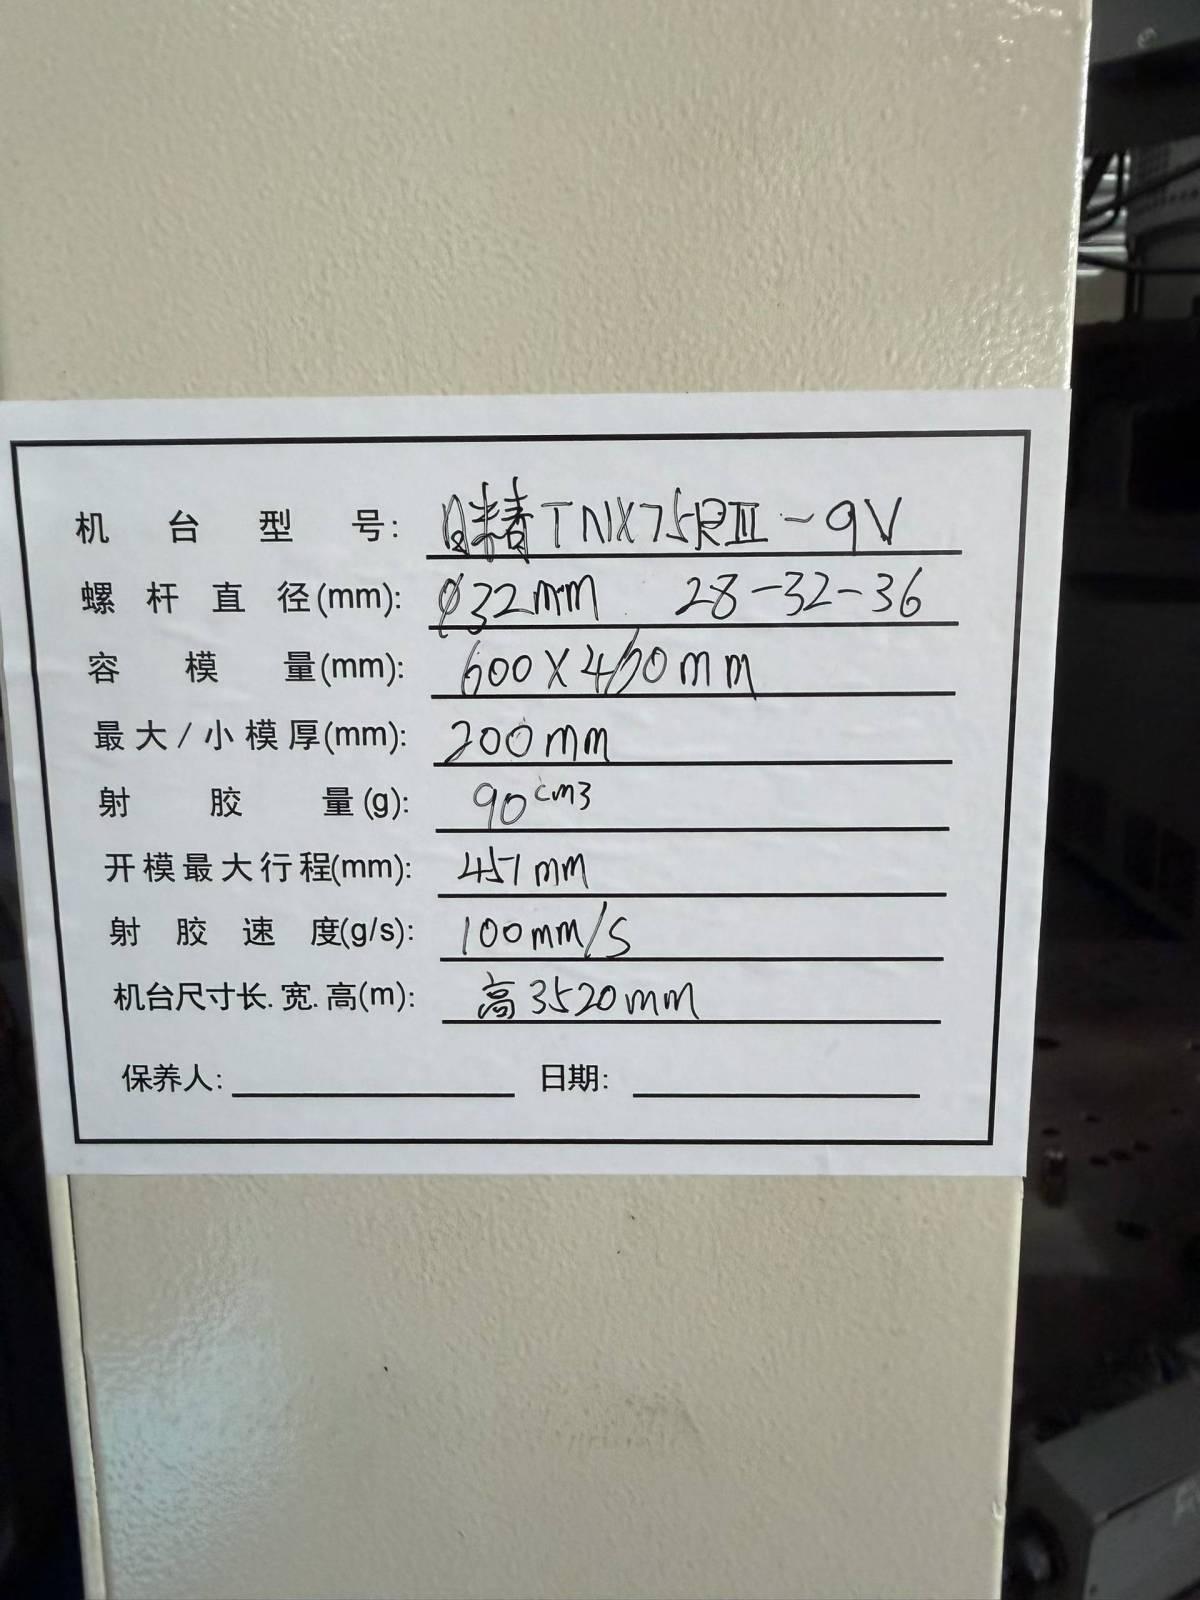 机台型号: 日精TNX75RⅢ-9V
螺杆直径(mm): ϕ32mm 28-32-36
容模量(mm): 600X460mm
最大/小模厚(mm): 200mm
射胶量(g): 90cm3
开模最大行程(mm): 451mm
射胶速度(g/s): 100mm/s
机台尺寸长.宽.高(m): 高3520mm
保养人: 日期: